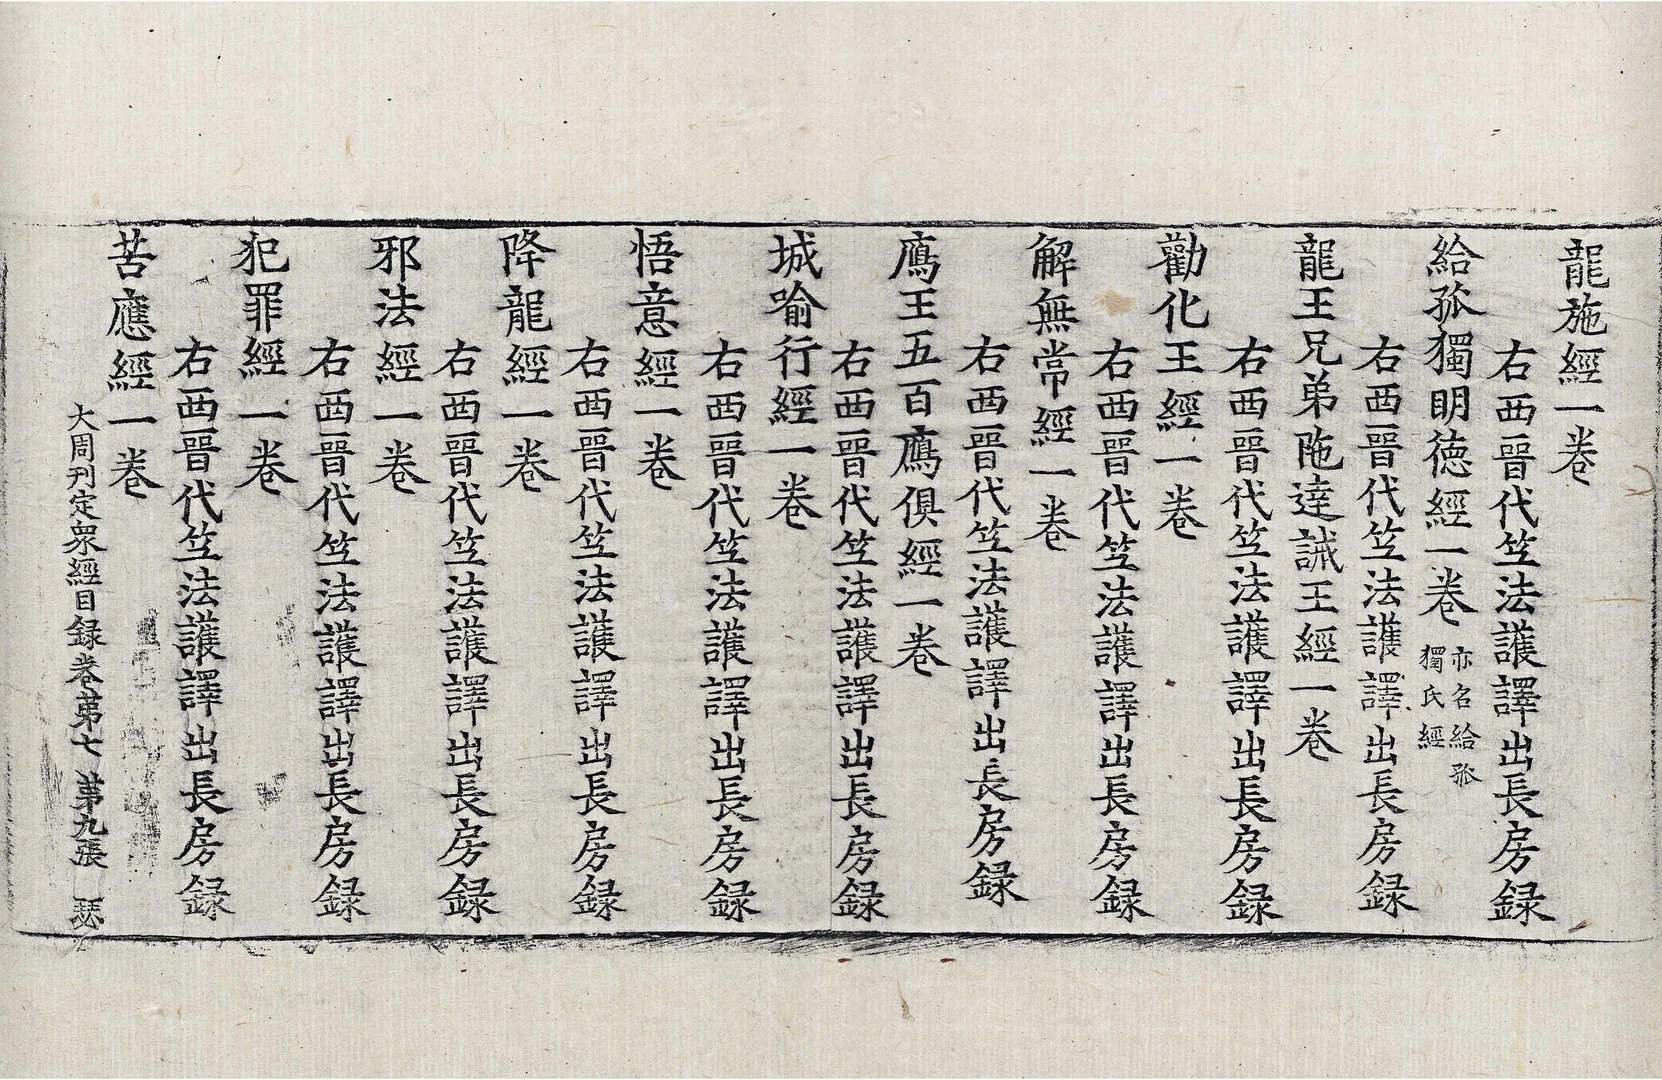 龍施經一卷
右西晉代竺法護譯出長房録
給孤獨明德經一卷亦名給孤獨氏經
右西晉代竺法護譯出長房録
龍王兄弟陁達誡王經一卷
右西晉代竺法護譯出長房録
勸化王經一卷
右西晉代竺法護譯出長房録
解無常經一卷
右西晉代竺法護譯出長房録
鴈王五百鴈俱經一卷
右西晉代竺法護譯出長房録
城喻行經一卷
右西晉代竺法護譯出長房録
悟意經一卷
右西晉代竺法護譯出長房録
降龍經一卷
右西晉代竺法護譯出長房録
邪法經一卷
右西晉代竺法護譯出長房録
犯罪經一卷
右西晉代竺法護譯出長房録
苦應經一卷
大周刊定衆經目録卷第七 第九張 瑟